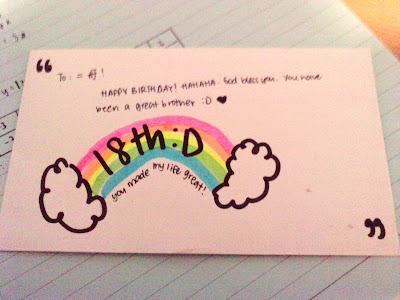 “
To:
HAPPY BIRTHDAY! HAHAHA. God bless you. You have
been a great brother :D ♥
18th:D
you made my life great!
”